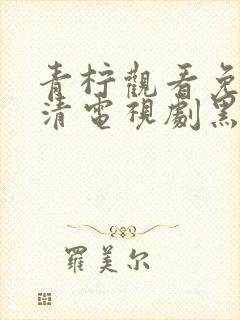 青柠觀看免
清電視劇黑
羅美尔